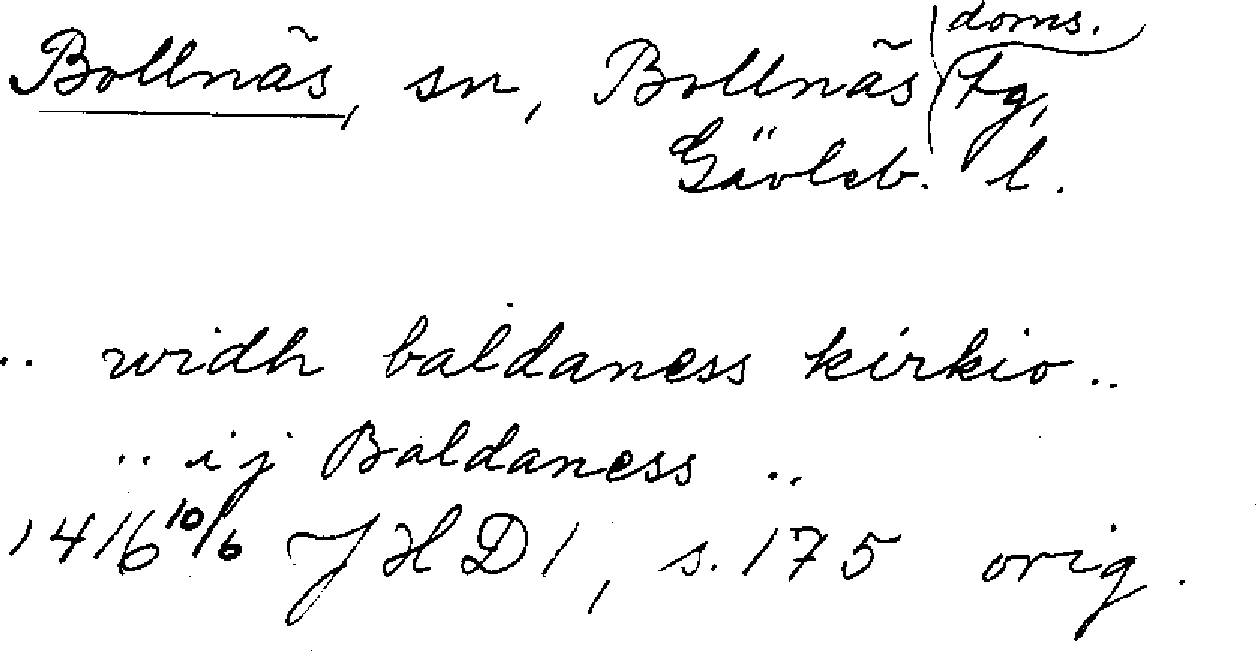 doms.
Bollnäs, sn, Bollnäs tg,
Gävleb. l.
.. widh baldaness kirkio ..
.. ij Baldaness ..
1416 10/6 JHD 1, s. 175 orig.